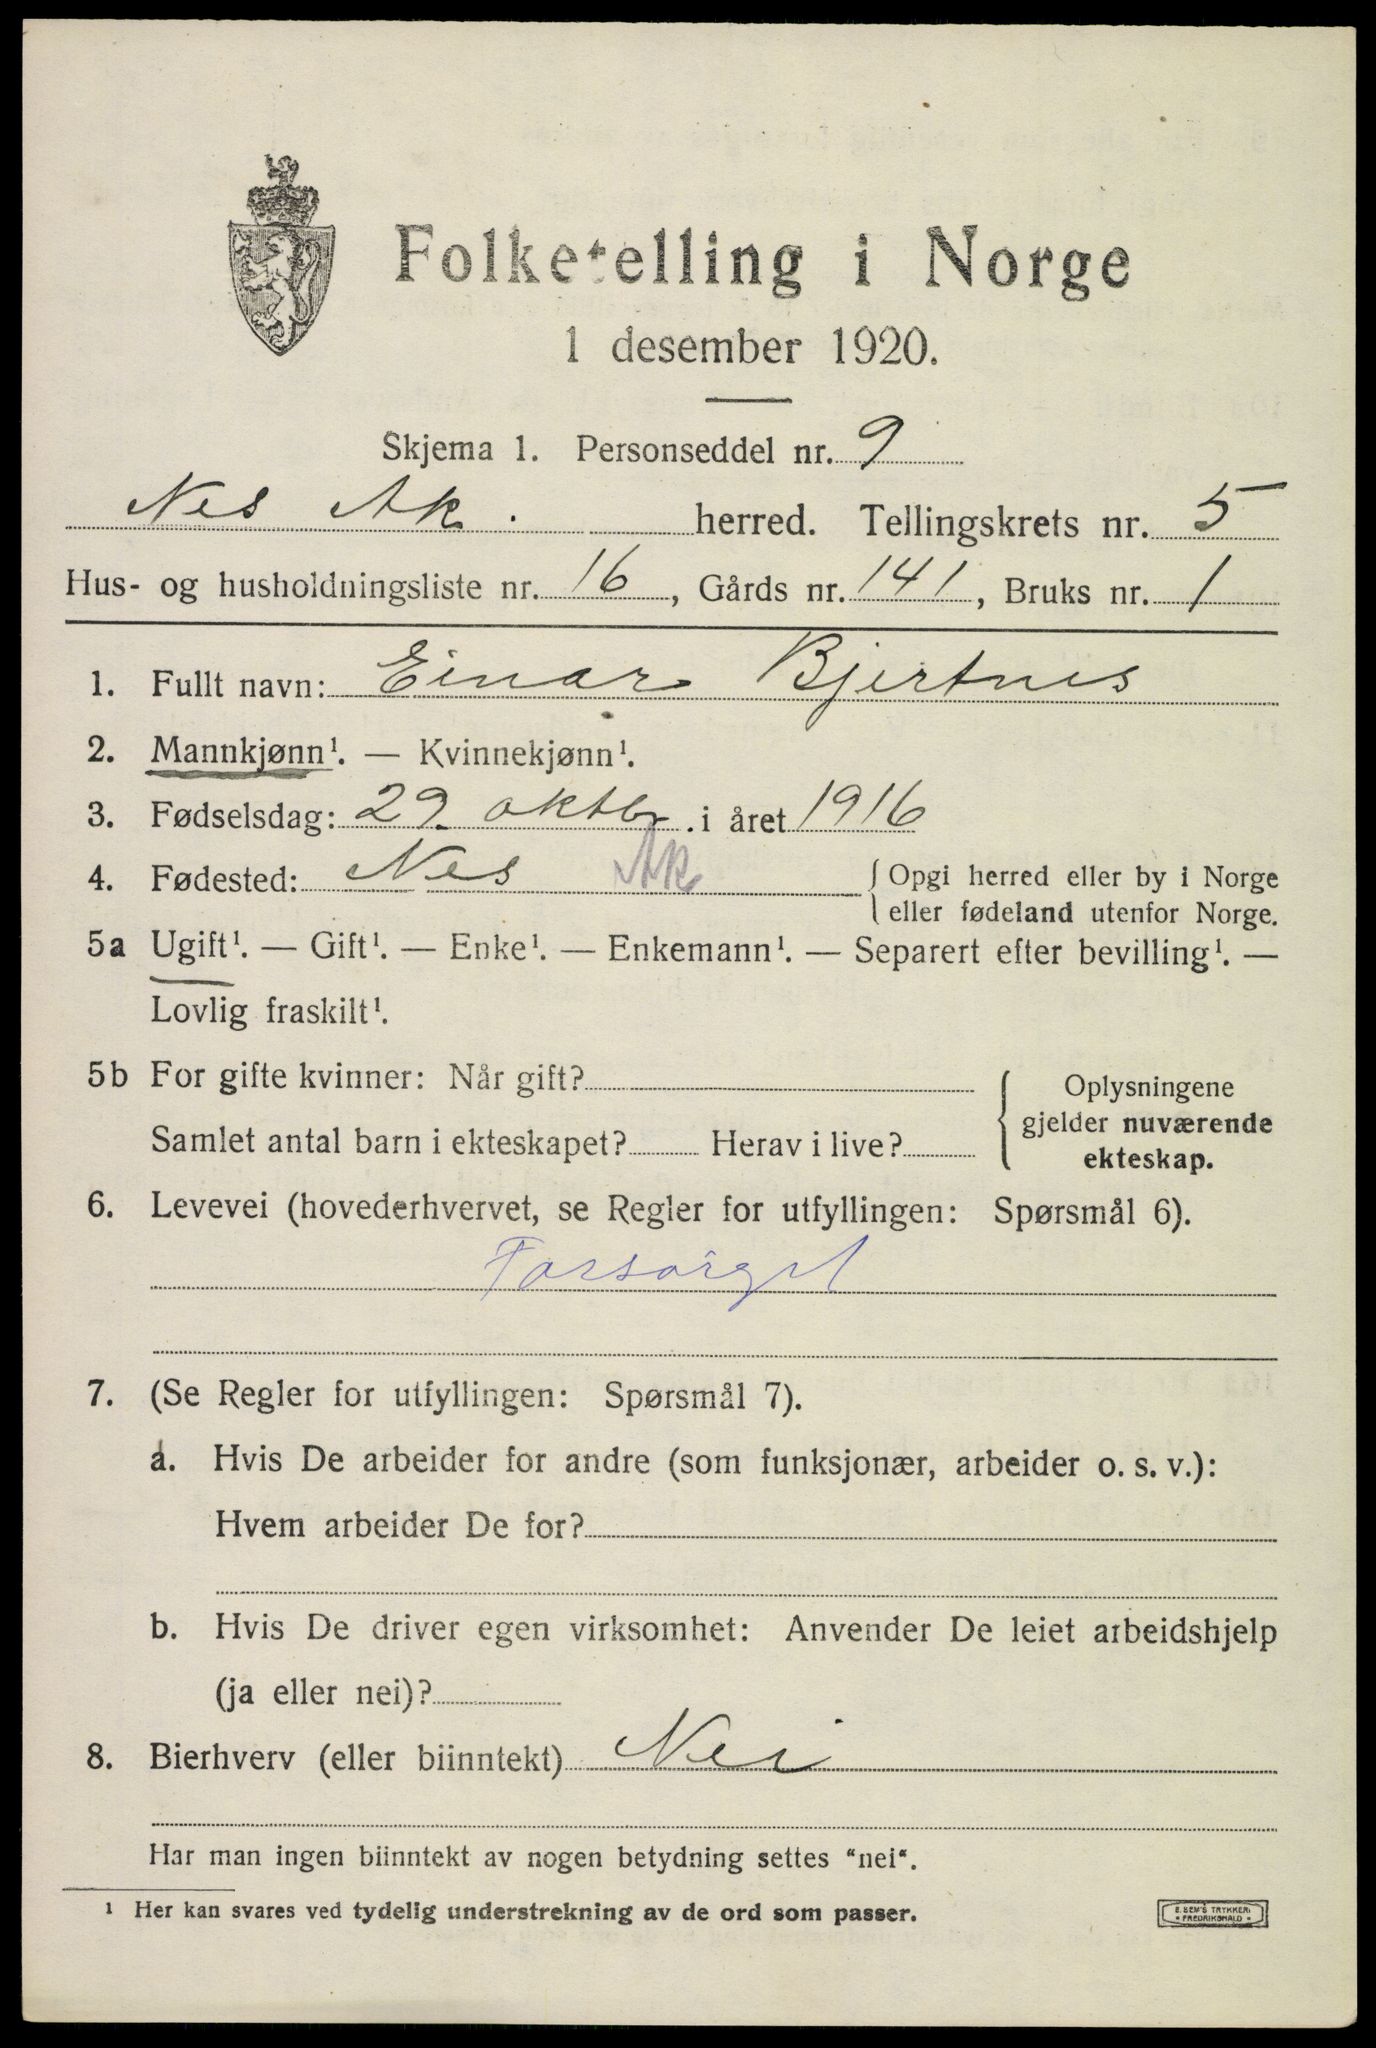 Folketelling i Norge
1 desember 1920.
Skjema 1. Personseddel nr. 9
Nes Ak. herred. Tellingskrets nr. 5
Hus- og husholdningsliste nr. 16, Gårds nr. 141, Bruks nr. 1
1. Fullt navn: Einar Bjertnes
2. Mannkjønn¹. — Kvinnekjønn¹.
3. Fødselsdag: 29. oktbr. i året 1916
4. Fødested: Nes Ak { Opgi herred eller by i Norge
eller fødeland utenfor Norge.
5a Ugift¹. — Gift¹. — Enke¹. — Enkemann¹. — Separert efter bevilling¹. —
Lovlig fraskilt¹.
5b For gifte kvinner: Når gift? { Oplysningene
gjelder nuværende
Samlet antal barn i ekteskapet? Herav i live?
ekteskap.
6. Levevei (hovederhvervet, se Regler for utfyllingen: Spørsmål 6).
Forsørget
7. (Se Regler for utfyllingen: Spørsmål 7).
a. Hvis De arbeider for andre (som funksjonær, arbeider o. s. v.):
Hvem arbeider De for?
b. Hvis De driver egen virksomhet: Anvender De leiet arbeidshjelp
(ja eller nei)?
8. Bierhverv (eller biinntekt) Nei
Har man ingen biinntekt av nogen betydning settes "nei".
¹ Her kan svares ved tydelig understrekning av de ord som passer.
E. SEM'S TRYKKERI
• FREDRIKSHALD •